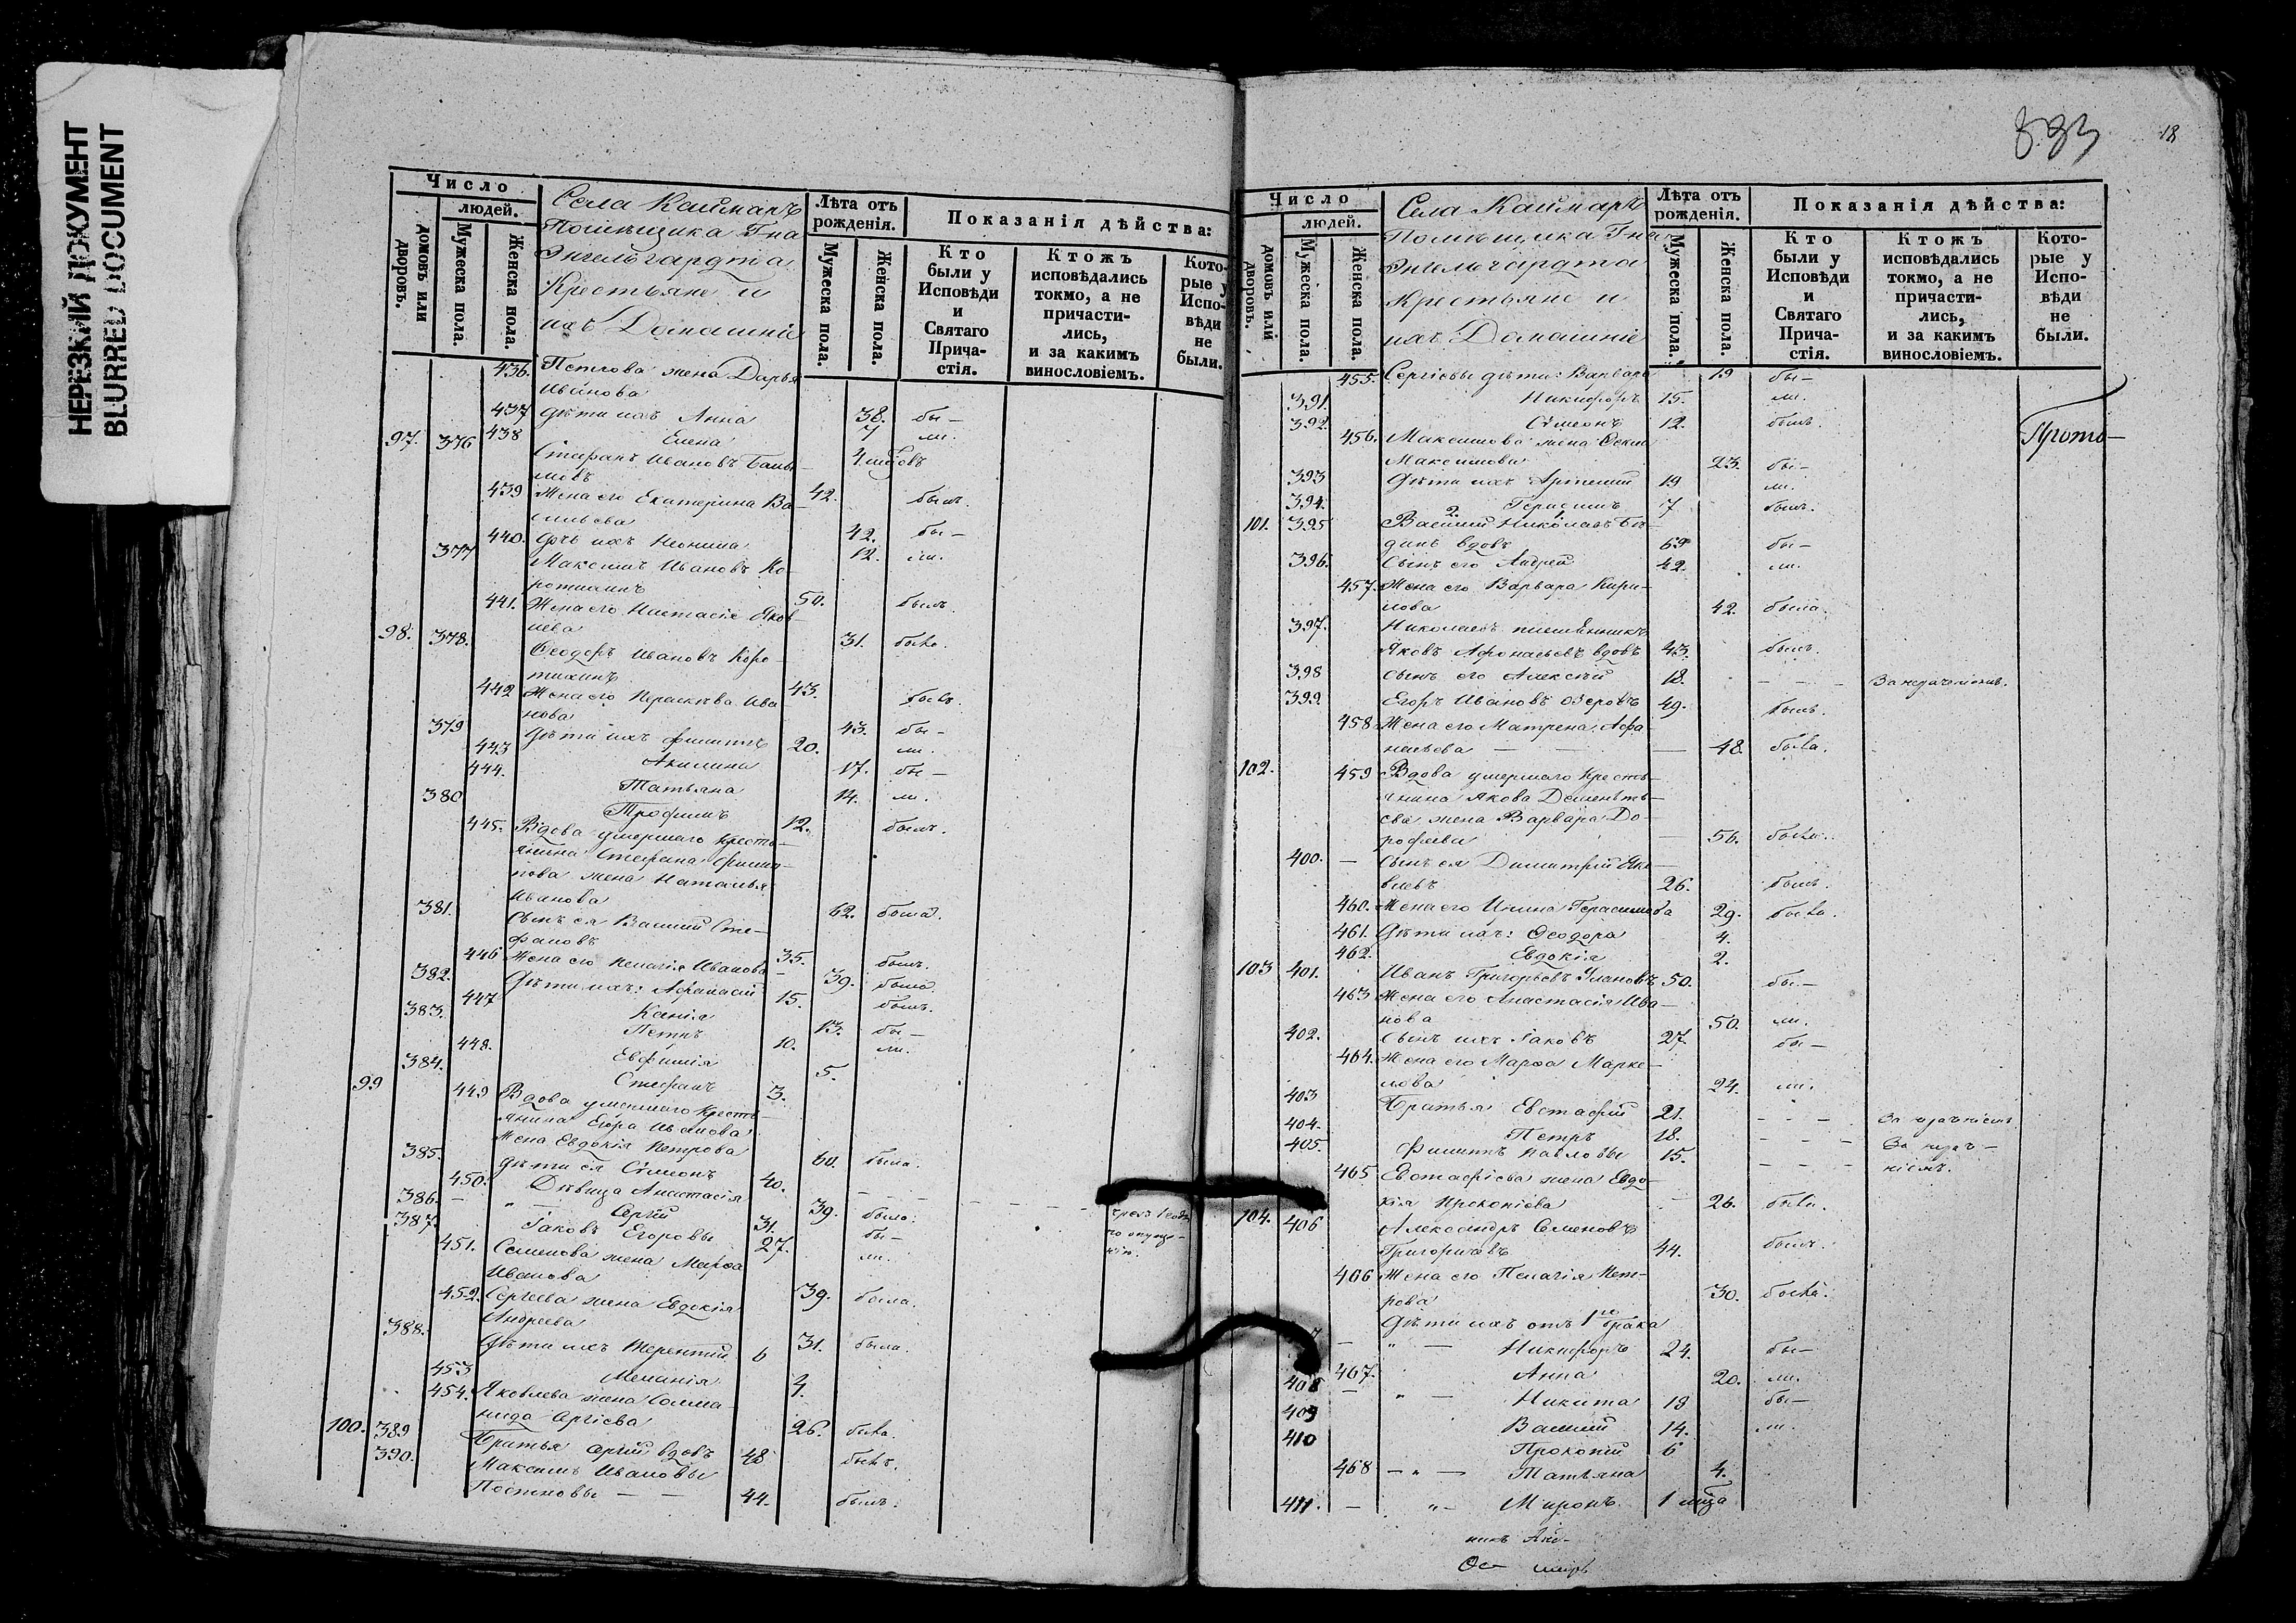 НЕРЕЗКИЙ ДОКУМЕНТ
BLURRED DOCUMENT
Число
людей.
домовъ или дворовъ.
Мужеска пола.
Женска пола.
Села Каймаръ
Помѣщика Гна
Энгельгардта
Крестьяне и
ихъ Домашніе
Лѣта отъ рожденія.
Мужеска пола.
Женска пола.
Показанія дѣйства:
Кто были у Исповѣди и Святаго Прича-стія.
Ктожъ исповѣдались токмо, а не причасти-лись, и за какимъ винословіемъ.
Кото-рые у Испо-вѣди не были.
436. Петрова жена Дарья
Иванова 38. бы-
437 Дѣти ихъ Анна 7 ли.
438 Елена
97. 376 Стефанъ Ивановъ
42. былъ.
439 Жена его Екатерина Ва-
сильева 42. бы-
440. Дчь ихъ 12. ли.
377 Максимъ Ивановъ Ко-
50. былъ.
441. Жена его Настасія Яков-
лева 31. была.
98. 378. Ѳеодоръ Ивановъ Коро-
43. былъ.
442 Жена его Параскева Ива
нова 43. бы-
379 Дѣти ихъ Филиппъ 20. ли.
443 Акилина 17. бы-
444. Татьяна 14. ли.
380 Трофимъ 12. былъ.
445. Вдова умершаго кресть-
янина Стефана Филип-
пова жена Наталья
Иванова 62. была.
381. Сынъ ея Василій Сте-
фановъ 35. былъ.
446 Жена его Пелагія Иванова 39. была.
382. Дѣти ихъ: Афанасій 15. былъ.
447 Ксенія 13. бы-
383. Петръ 10. ли.
448. Евфимія 5.
384. Стефанъ 3.
99 449 Вдова умершаго кресть-
янина Егора Иванова
жена Евдокія Петрова 60. была.
385. Дѣти ея Симеонъ 40.
450. Дѣвица Анастасія 39. была.
386. Сергій 31. бы-
387. Іаковъ Егоровы 27. ли.
451. Семенова жена Марѳа
Иванова 39. была.
452. Сергѣева жена Евдокія
Андреева 31. была.
388. Дѣти ихъ Терентій 6
453 Меланія 4.
454. Яковлева жена Солома-
нида Сергіева 26. была.
100. 389 Братья Сергій вдовъ 48 былъ.
390. Максимъ Ивановы
44. былъ.
18
Число
людей.
домовъ или дворовъ.
Мужеска пола.
Женска пола.
Села Каймаръ
Помѣщика Гна
Энгельгардта
Крестьяне и
ихъ Домашніе
Лѣта отъ рожденія.
Мужеска пола.
Женска пола.
Показанія дѣйства:
Кто были у Исповѣди и Святаго Прича-стія.
Ктожъ исповѣдались токмо, а не причасти-лись, и за какимъ винословіемъ.
Кото-рые у Испо-вѣди не были.
455. Сергіевы дѣти: Варвара 19 бы-
391. Никифоръ 15. ли.
392. Симеонъ 12. былъ.
Прото-
456. Максимова жена
Максимова 23. бы-
393 Дѣти ихъ Артемій 19 ли.
394. Герасимъ 7 былъ.
101. 395 Василій Николаевъ
вдовъ 69 бы-
396. Сынъ его Андрей 42. ли.
457. Жена его Варвара Кири-
лова 42. была.
397. Николаевъ племянникъ
Яковъ Афонасьевъ вдовъ 43. былъ.
398 Сынъ его Алексій 18. - - -
399. Егоръ Ивановъ Озеровъ 49. былъ.
458 Жена его Матрена Афа-
насьева 48. была.
102. 459 Вдова умершаго кресть-
янина Якова Дементь-
ева жена Варвара До-
рофеева 56. была.
400. Сынъ ея Димитрій Яко-
влевъ 26. былъ.
460. Жена его Ирина Герасимова 29. была.
461. Дѣти ихъ: Ѳеодора 4.
462. Евдокія 2.
103 401. Иванъ Григорьевъ Улановъ 50. бы-
463 Жена его Анастасія Ива-
нова 50. ли.
402. Сынъ ихъ Іаковъ 27 бы-
464. Жена его Марѳа Марке-
лова 24. ли.
403 Братья Евстафій 21. - - -
404. Петръ 18. - - -
405. Филиппъ Павловы 15. - - -
465 Евстафіева жена Евдо-
кія Прокопіева 26. была.
104. 406 Александръ Семеновъ
Григоричевъ 44. былъ.
406 Жена его Пелагія Пет-
рова 30. была.
Дѣти ихъ отъ 1го брака
Никифоръ 24. бы-
467. Анна 20. ли.
408 Никита 18 бы-
409 Василій 14. ли.
410 Прокопій 6
468 Татьяна 4.
411. Миронъ